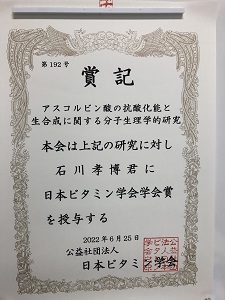 第192号
賞記
アスコルビン酸の抗酸化能と
生合成に関する分子生理学的研究
本会は上記の研究に対し
石川孝博君に
日本ビタミン学会学会賞
を授与する
2022年6月25日
公益社団法人
日本ビタミン学会